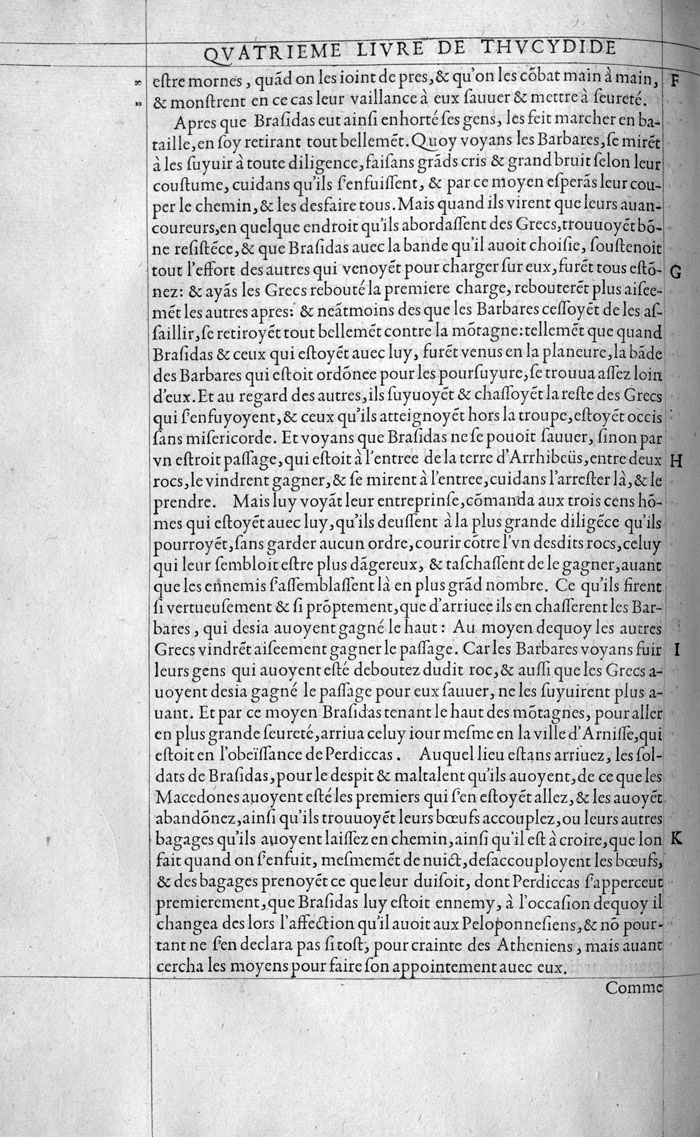 QVATRIEME LIVRE DE THVCYDIDE
eſtre mornes, quãd on les ioint de pres, & qu'on les cõbat main à main, F
& monſtrent en ce cas leur vaillance à eux ſauuer & mettre à ſeureté.
Apres que Braſidas eut ainſi enhorté ſes gens, les feit marcher en ba-
taille, en ſoy retirant tout bellemẽt. Quoy voyans les Barbares, ſe mirẽt
à les ſuyuir à toute diligence, faiſans grãds cris & grand bruit ſelon leur
couſtume, cuidans qu'ils ſ'enfuiſſent, & par ce moyen eſperãs leur cou-
per le chemin, & les desfaire tous. Mais quand ils virent que leurs auan-
coureurs, en quelque endroit qu'ils abordaſſent des Grecs, trouuoyẽt bõ-
ne reſiſtẽce, & que Braſidas auec la bande qu'il auoit choiſie, ſouſtenoit
tout l'effort des autres qui venoyẽt pour charger ſur eux, furẽt tous eſtõ- G
nez: & ayãs les Grecs rebouté la premiere charge, rebouterẽt plus aiſee-
mẽt les autres apres: & neãtmoins des que les Barbares ceſſoyẽt de les aſ-
ſaillir, ſe retiroyẽt tout bellemẽt contre la mõtagne: tellemẽt que quand
Braſidas & ceux qui eſtoyẽt auec luy, furẽt venus en la planeure, la bãde
des Barbares qui eſtoit ordõnee pour les pourſuyure, ſe trouua aſſez loin
d'eux. Et au regard des autres, ils ſuyuoyẽt & chaſſoyẽt la reſte des Grecs
qui ſ'enfuyoyent, & ceux qu'ils atteignoyẽt hors la troupe, eſtoyẽt occis
ſans miſericorde. Et voyans que Braſidas ne ſe pouoit ſauuer, ſinon par
vn eſtroit paſſage, qui eſtoit à l'entree de la terre d'Arrhibeüs, entre deux H
rocs, le vindrent gagner, & ſe mirent à l'entree, cuidans l'arreſter là, & le
prendre. Mais luy voyãt leur entreprinſe, cõmanda aux trois cens hõ-
mes qui eſtoyẽt auec luy, qu'ils deuſſent à la plus grande diligẽce qu'ils
pourroyẽt, ſans garder aucun ordre, courir cõtre l'vn desdits rocs, celuy
qui leur ſembloit eſtre plus dãgereux, & taſchaſſent de le gagner, auant
que les ennemis ſ'aſſemblaſſent là en plus grãd nombre. Ce qu'ils firent
ſi vertueuſement & ſi prõptement, que d'arriuee ils en chaſſerent les Bar-
bares, qui desia auoyent gagné le haut: Au moyen dequoy les autres
Grecs vindrẽt aiſeement gagner le paſſage. Car les Barbares voyans fuir I
leurs gens qui auoyent eſté deboutez dudit roc, & auſſi que les Grecs a-
uoyent desia gagné le paſſage pour eux ſauuer, ne les ſuyuirent plus a-
uant. Et par ce moyen Braſidas tenant le haut des mõtagnes, pour aller
en plus grande ſeureté, arriua celuy iour meſme en la ville d'Arniſſe, qui
eſtoit en l'obeïſſance de Perdiccas. Auquel lieu eſtans arriuez, les ſol-
dats de Braſidas, pour le despit & maltalent qu'ils auoyent, de ce que les
Macedones auoyent eſté les premiers qui ſ'en eſtoyẽt allez, & les auoyẽt
abandõnez, ainſi qu'ils trouuoyẽt leurs bœufs accouplez, ou leurs autres
bagages qu'ils auoyent laiſſez en chemin, ainſi qu'il eſt à croire, que lon K
fait quand on ſ'enfuit, meſmemẽt de nuict, deſaccouployent les bœufs,
& des bagages prenoyẽt ce que leur duiſoit, dont Perdiccas ſ'apperceut
premierement, que Braſidas luy eſtoit ennemy, à l'occaſion dequoy il
changea des lors l'affection qu'il auoit aux Peloponneſiens, & nõ pour-
tant ne ſ'en declara pas ſi toſt, pour crainte des Atheniens, mais auant
cercha les moyens pour faire ſon appointement auec eux.
Comme